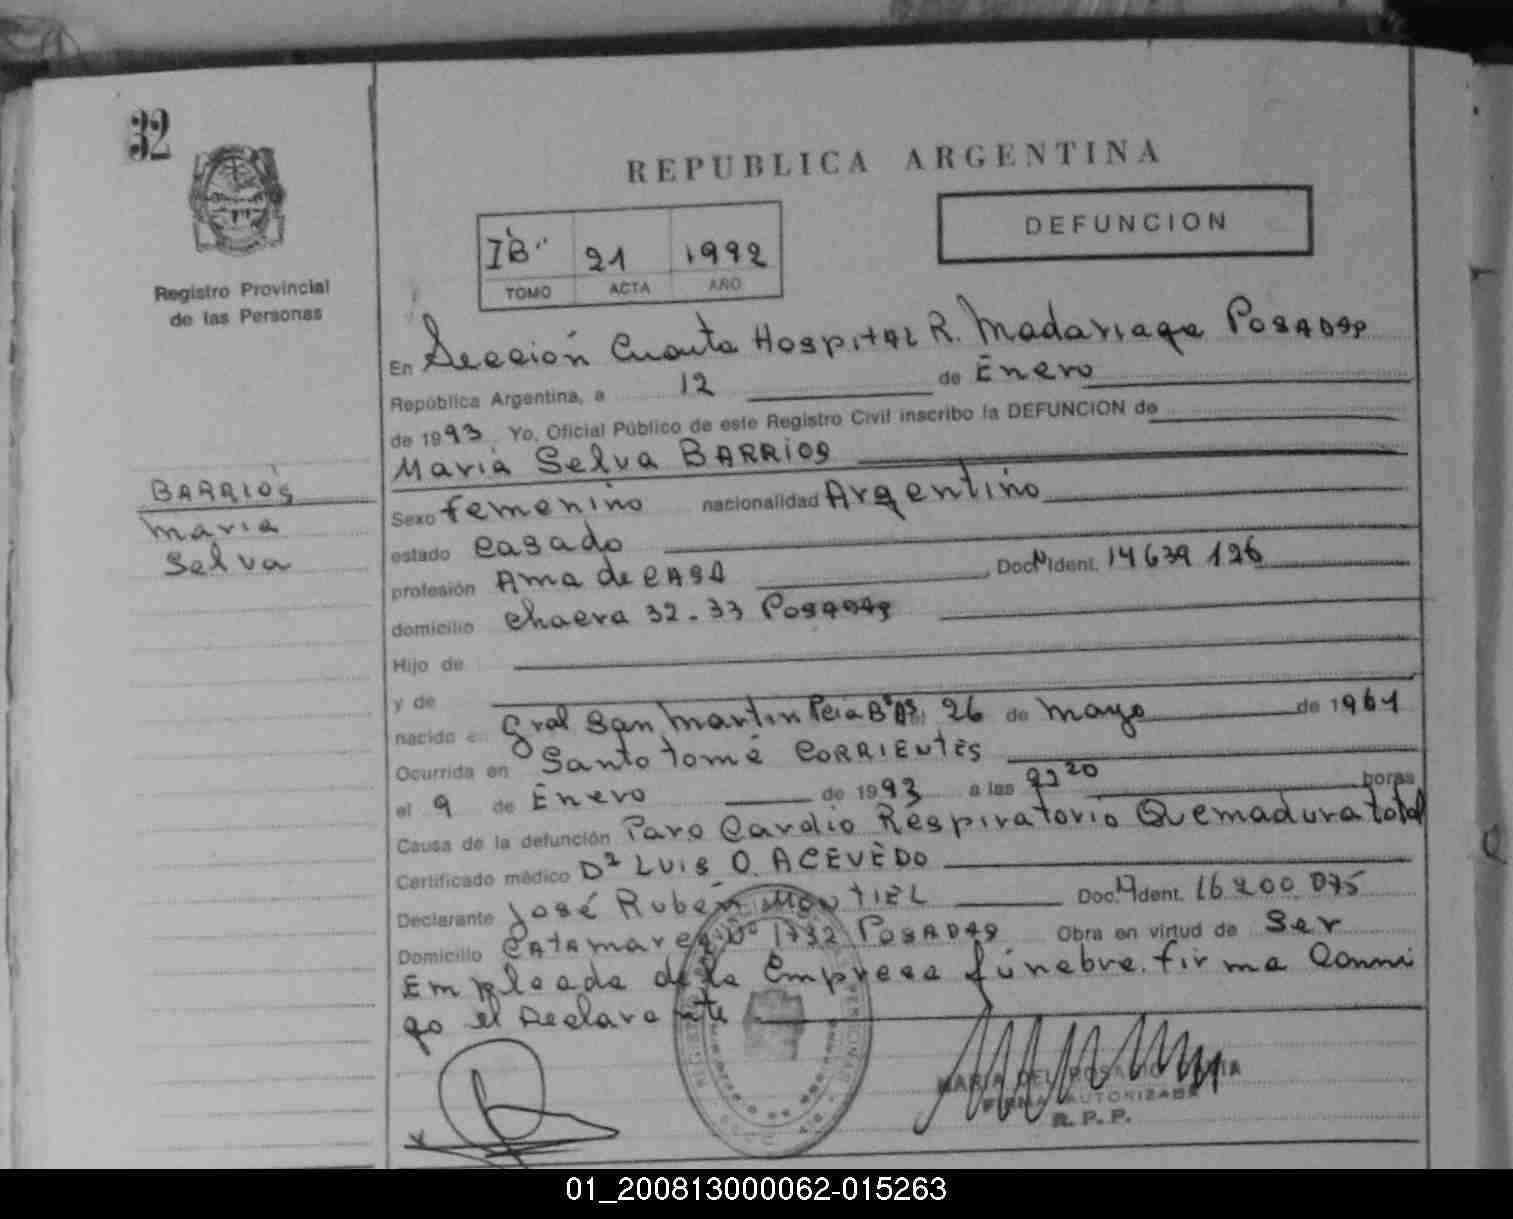 32
Registro Provincial
de las Personas
REPUBLICA ARGENTINA
DEFUNCION
IB" 21 1992
TOMO ACTA AÑO
En Sección Cuarta HospitAL R. Madariaga POSADAS
República Argentina, a 12 de Enero
de 1993. Yo, Oficial Público de este Registro Civil inscribo la DEFUNCION de
Maria Selva BARRiOS
BARRIOS
Maria
Selva
Sexo femenino nacionalidad Argentino
estado casado
profesión Ama de CASA Doc. N Ident. 14 639 126
domicilio chacra 32-33 POSADAS
Hijo de
y de
nacido en Gral San Martin Pcia Bs As el 26 de mayo de 1961
Ocurrida en Santo tomé CORRIENTES
el 9 de Enero de 1993 a las horas
Causa de la defunción Paro Cardio Respiratorio Quemadura total
Certificado médico Dr LUIS O. ACEVEDO
Declarante José Rubén MONTIEL Doc. N Ident. 16 200 075
Domicilio CATAmarca Nº 1732 POSADAS Obra en virtud de Ser
Empleado de la Empresa fúnebre. firma Conmi
go el Declarante
MARIA DEL
FIRMA AUTORIZADA
R. P. P.
01_200813000062-015263